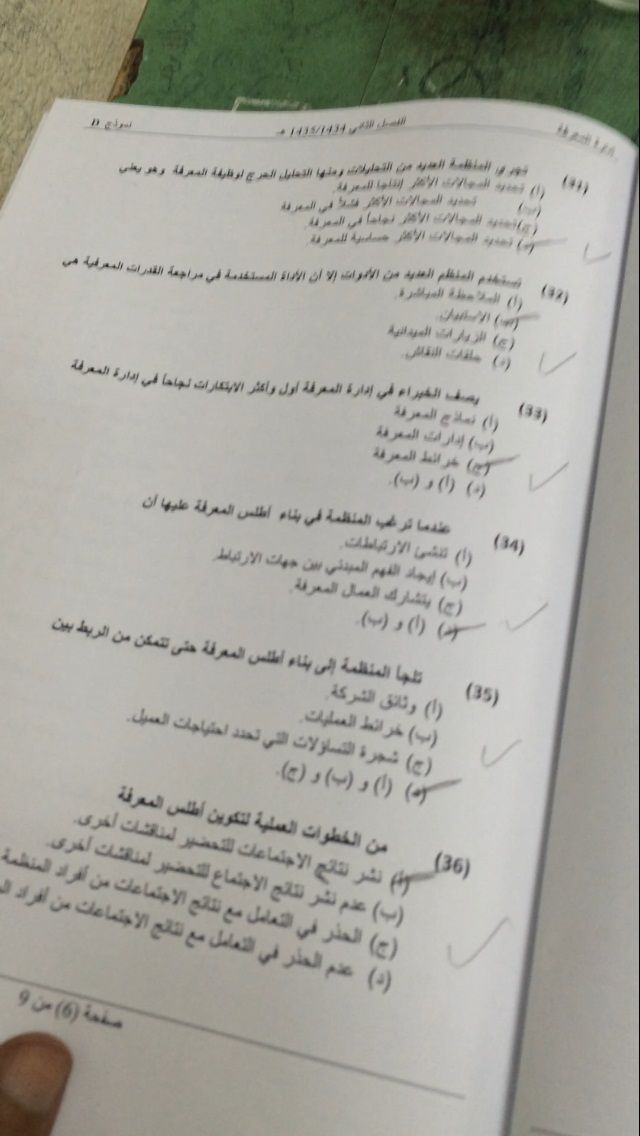 إدارة المعرفة
الفصل الثاني 1435/1434 هـ
نموذج D
(31) تجري المنظمة العديد من التحليلات ومنها التحليل الحرج لوظيفة المعرفة وهو يعني
(أ) تحديد المجالات الأكثر إنتاجا للمعرفة.
(ب) تحديد المجالات الأكثر فشلاً في المعرفة.
(ج) تحديد المجالات الأكثر نجاحاً في المعرفة.
(د) تحديد المجالات الأكثر حساسية للمعرفة.
(32) يستخدم المنظم العديد من الأدوات إلا أن الأداة المستخدمة في مراجعة القدرات المعرفية هي
(أ) الملاحظة المباشرة.
(ب) الاستبيان.
(ج) الزيارات الميدانية
(د) حلقات النقاش.
(33) يصف الخبراء في إدارة المعرفة أول وأكثر الابتكارات نجاحاً في إدارة المعرفة
(أ) نماذج المعرفة
(ب) إدارات المعرفة
(ج) خرائط المعرفة
(د) (أ) و (ب).
(34) عندما ترغب المنظمة في بناء أطلس المعرفة عليها أن
(أ) تنشئ الارتباطات.
(ب) إيجاد الفهم المبدئي بين جهات الارتباط.
(ج) يتشارك العمال المعرفة.
(د) (أ) و (ب).
(35) تلجأ المنظمة إلى بناء أطلس المعرفة حتى تتمكن من الربط بين
(أ) وثائق الشركة.
(ب) خرائط العمليات.
(ج) شجرة التساؤلات التي تحدد احتياجات العميل.
(د) (أ) و (ب) و (ج).
(36) من الخطوات العملية لتكوين أطلس المعرفة
(أ) نشر نتائج الاجتماعات للتحضير لمناقشات أخرى.
(ب) عدم نشر نتائج الاجتماع للتحضير لمناقشات أخرى.
(ج) الحذر في التعامل مع نتائج الاجتماعات من أفراد المنظمة
(د) عدم الحذر في التعامل مع نتائج الاجتماعات من أفراد
صفحة (6) من 9